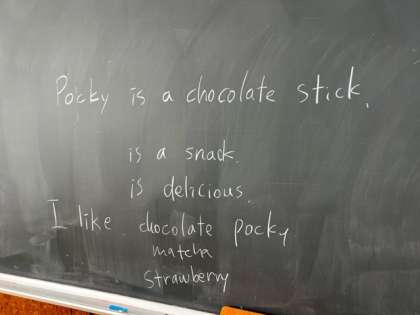 Pocky is a chocolate stick.
is a snack.
is delicious.
I like chocolate pocky
matcha
strawberry